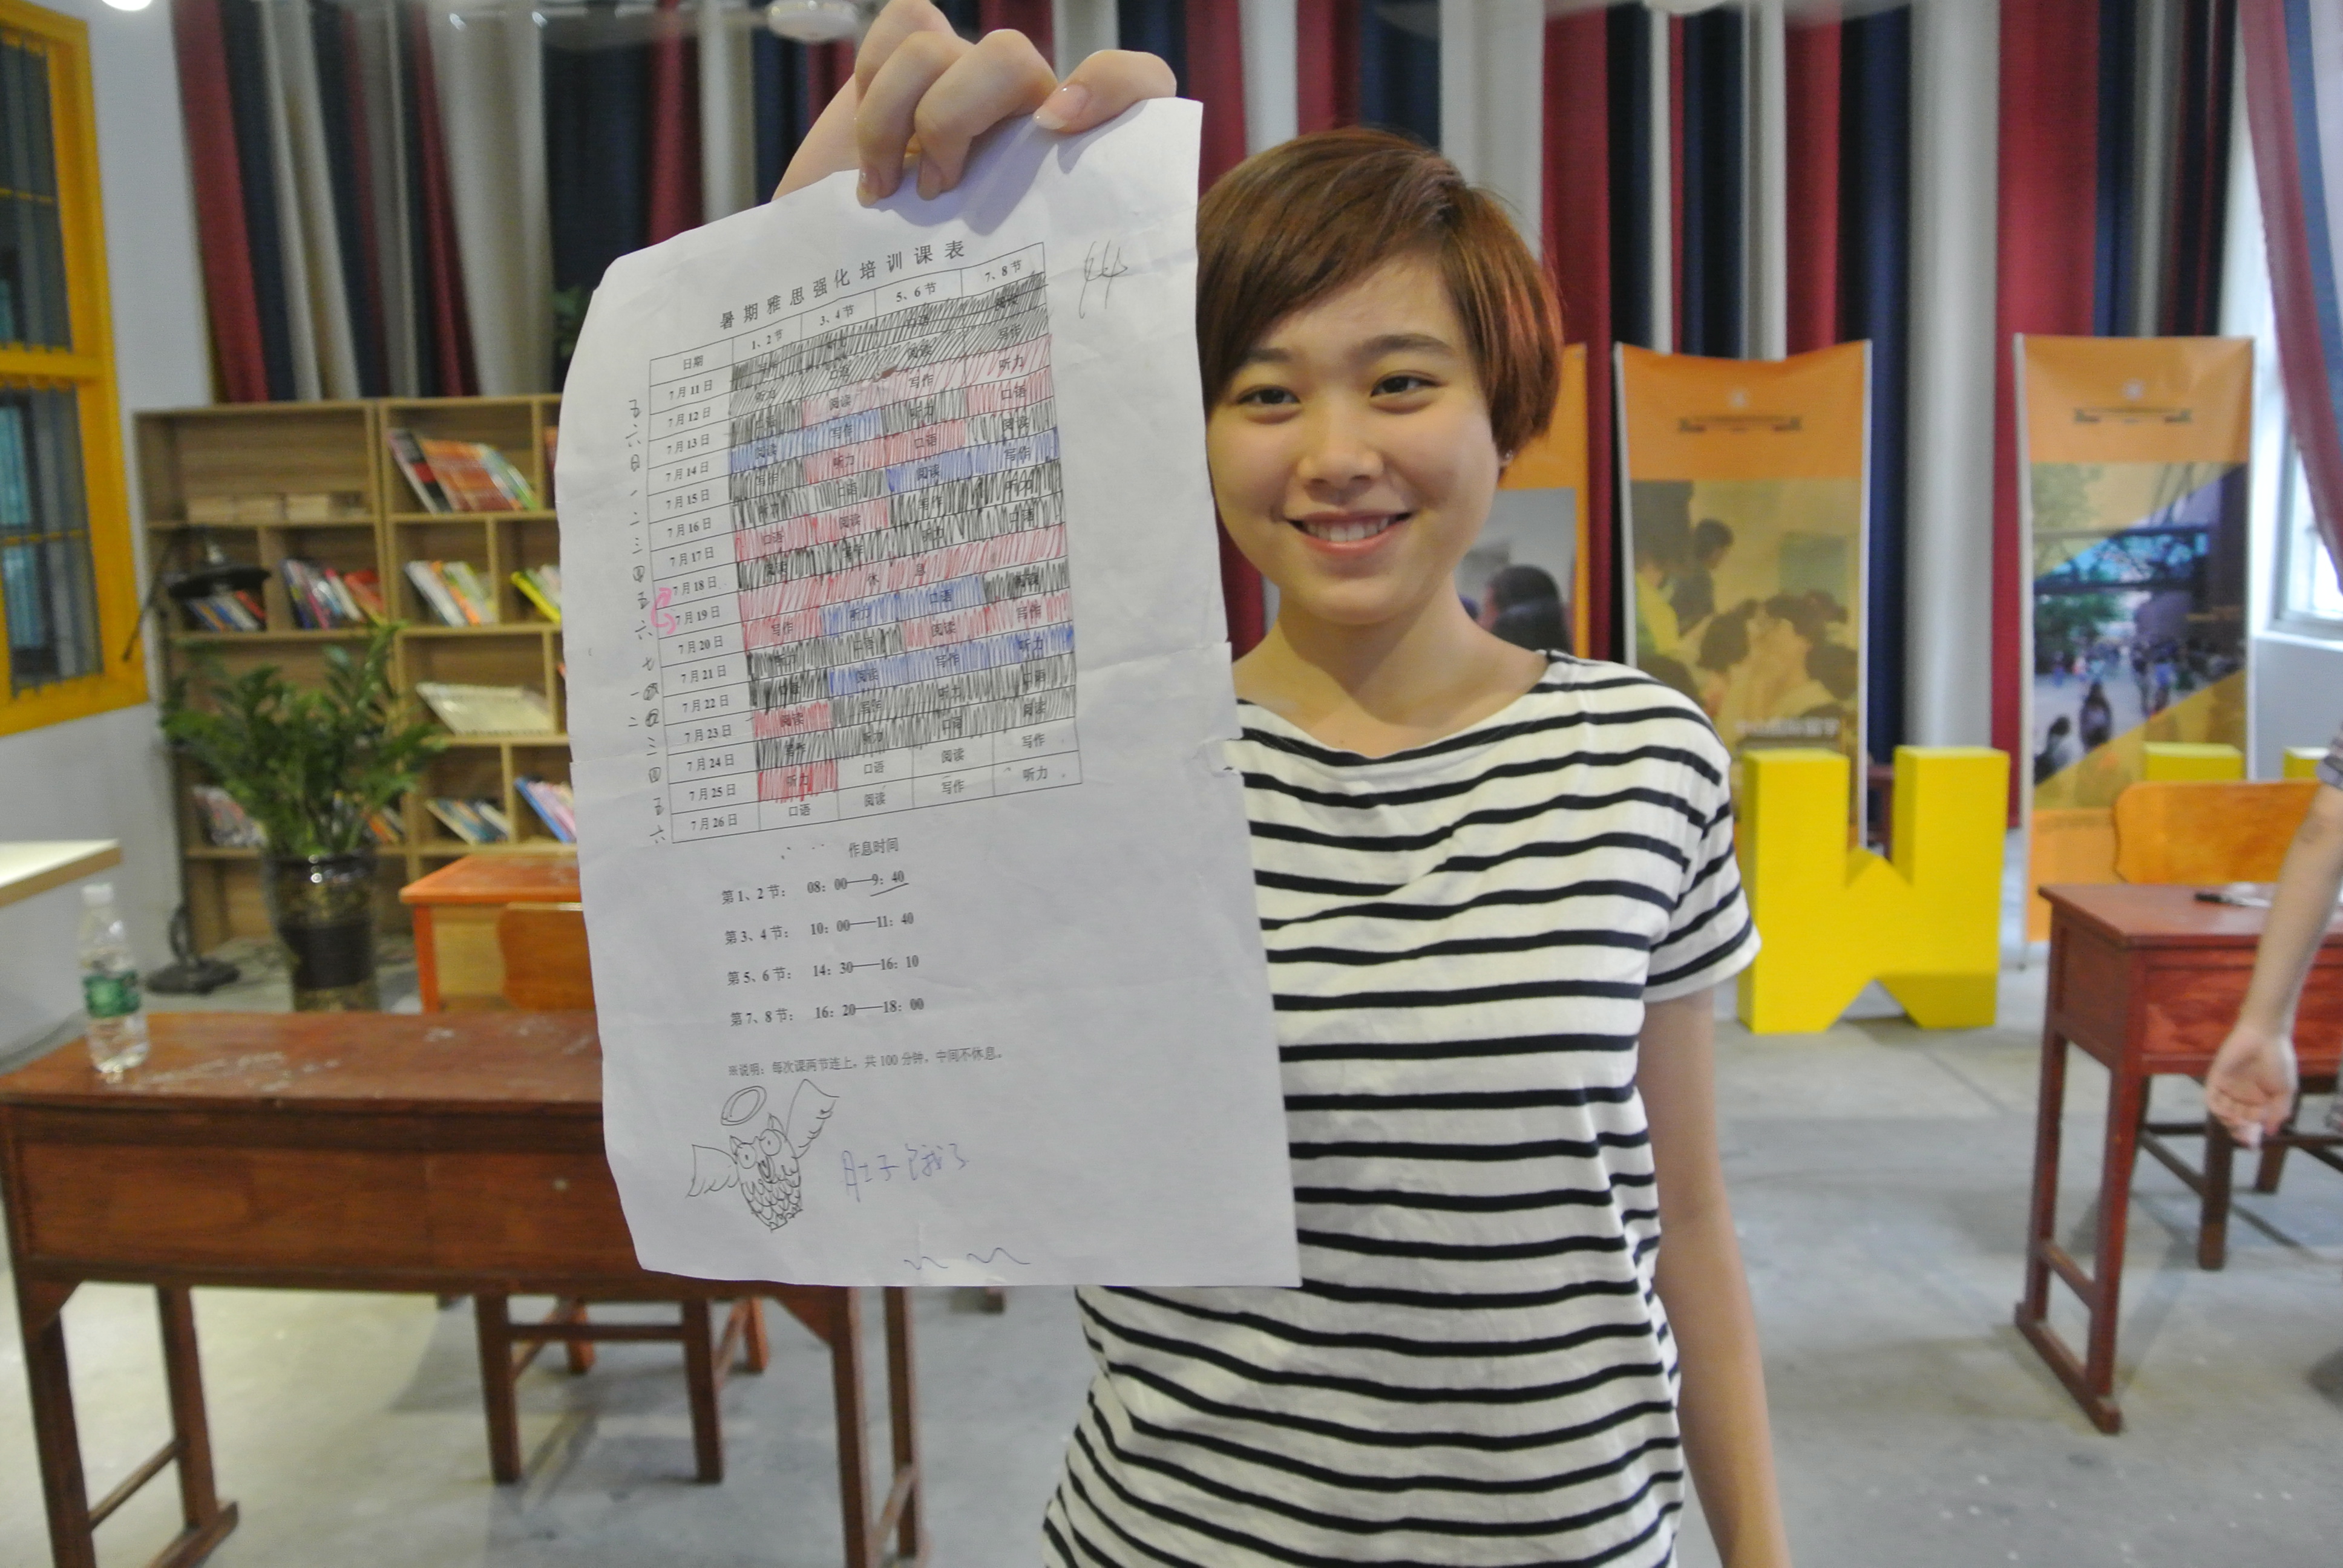 暑期雅思强化培训课表
日期 1、2节 3、4节 5、6节 7、8节
五 7月11日 写作 听力 口语 阅读
六 7月12日 听力 口语 阅读 写作
日 7月13日 口语 阅读 写作 听力
一 7月14日 阅读 写作 听力 口语
二 7月15日 写作 听力 口语 阅读
三 7月16日 听力 口语 阅读 写作
四 7月17日 口语 阅读 写作 听力
五 7月18日 阅读 写作 听力 口语
六 7月19日 休息
七 7月20日 写作 听力 口语 阅读
一 7月21日 听力 口语 阅读 写作
二 7月22日 口语 阅读 写作 听力
三 7月23日 阅读 写作 听力 口语
四 7月24日 写作 听力 口语 阅读
五 7月25日 听力 口语 阅读 写作
六 7月26日 口语 阅读 写作 听力
作息时间
第1、2节： 08：00——9：40
第3、4节： 10：00——11：40
第5、6节： 14：30——16：10
第7、8节： 16：20——18：00
※说明：每次课两节连上，共100分钟，中间不休息。
肚子饿了
W